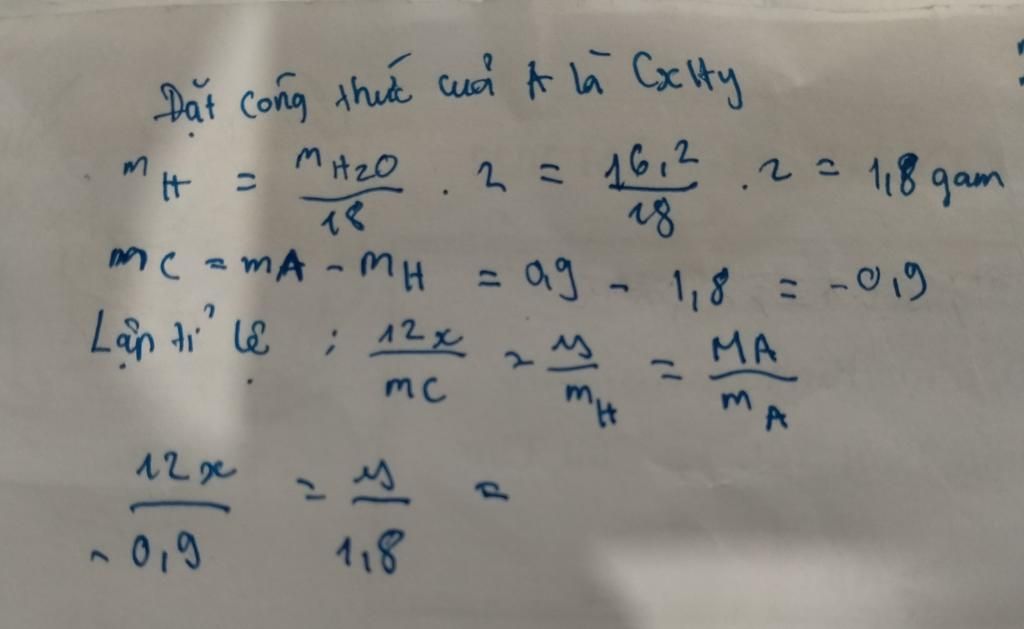 Đặt công thức cuả A là CxHy
mH = mH2O/18 . 2 = 16,2/18 . 2 = 1,8 gam
mC = mA - mH = 0,9 - 1,8 = -0,9
Lập tỉ lệ : 12x/mC = y/mH = MA/mA
12x/-0,9 = y/1,8 =